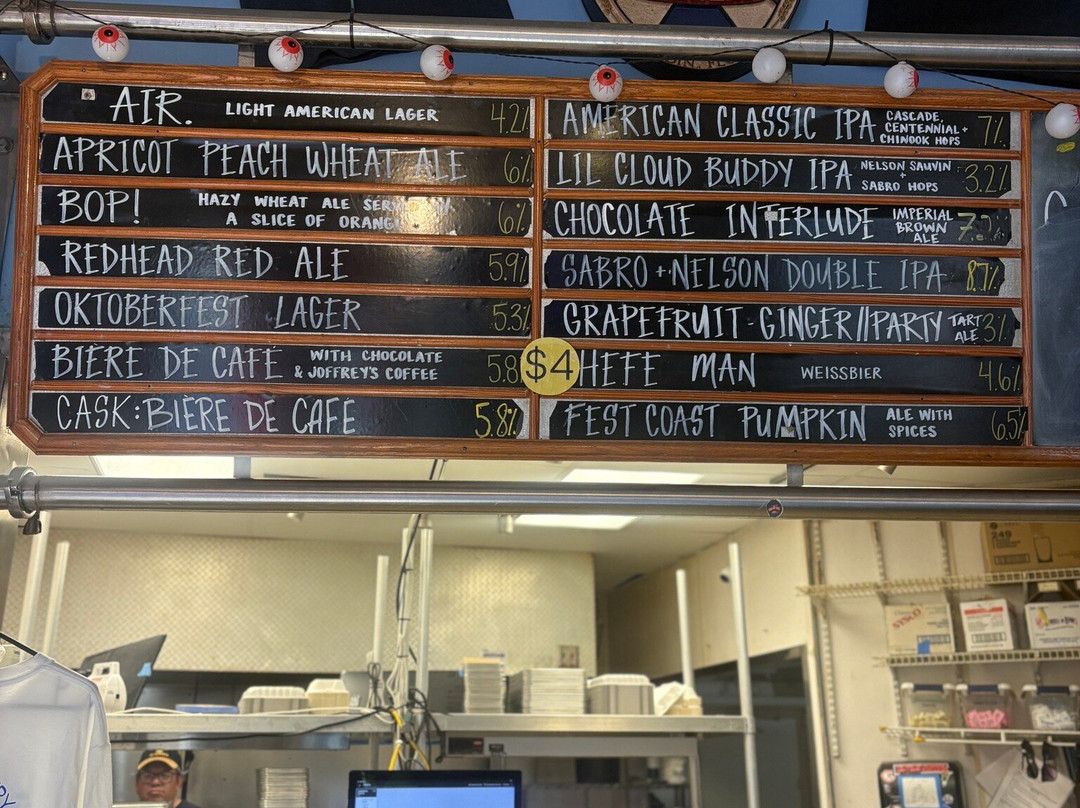 AIR. LIGHT AMERICAN LAGER 4.2%
APRICOT PEACH WHEAT ALE 6%
BOP! HAZY WHEAT ALE
A SLICE OF ORANGE 6%
REDHEAD RED ALE 5.9%
OKTOBERFEST LAGER 5.3%
BIÈRE DE CAFÉ WITH CHOCOLATE
& JOFFREY'S COFFEE 5.8
CASK: BIÈRE DE CAFÉ 5.8%
$4
AMERICAN CLASSIC IPA CASCADE,
CENTENNIAL +
CHINOOK HOPS 7%
LIL CLOUD BUDDY IPA NELSON SAUVIN
+
SABRO HOPS 3.2%
CHOCOLATE INTERLUDE IMPERIAL
BROWN
ALE
SABRO + NELSON DOUBLE IPA 8.7%
GRAPEFRUIT - GINGER // PARTY TART
ALE 3%
HEFE MAN WEISSBIER 4.6%
FEST COAST PUMPKIN ALE WITH
SPICES 6.5%
249
SYSCO